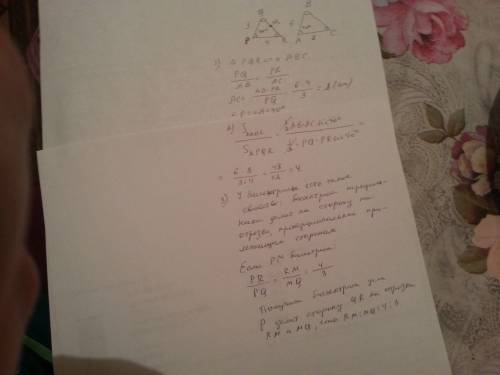 Q
B
3
40°
P
4
R
6
40°
A
8
C
1) Δ PQR ∞ Δ ABC.
PQ/AB = PR/AC
AC = AB·PR/PQ = 6·4/3 = 8 (см)
∠P = ∠A = 40°
2) S ΔABC / S ΔPQR = ½ AB·AC sin 40° / ½ PQ·PR sin 40° =
= 6·8/3·4 = 48/12 = 4.
3) У биссектрисы есть такое
свойство: биссектриса треуголь-
ника делит его сторону на
отрезки, пропорциональные при-
лежащим сторонам
Если PM биссектриса
PR/PQ = RM/MQ = 4/3
биссектриса угла
P делит сторону QR на отрезки
RM и MQ, RM:MQ = 4:3